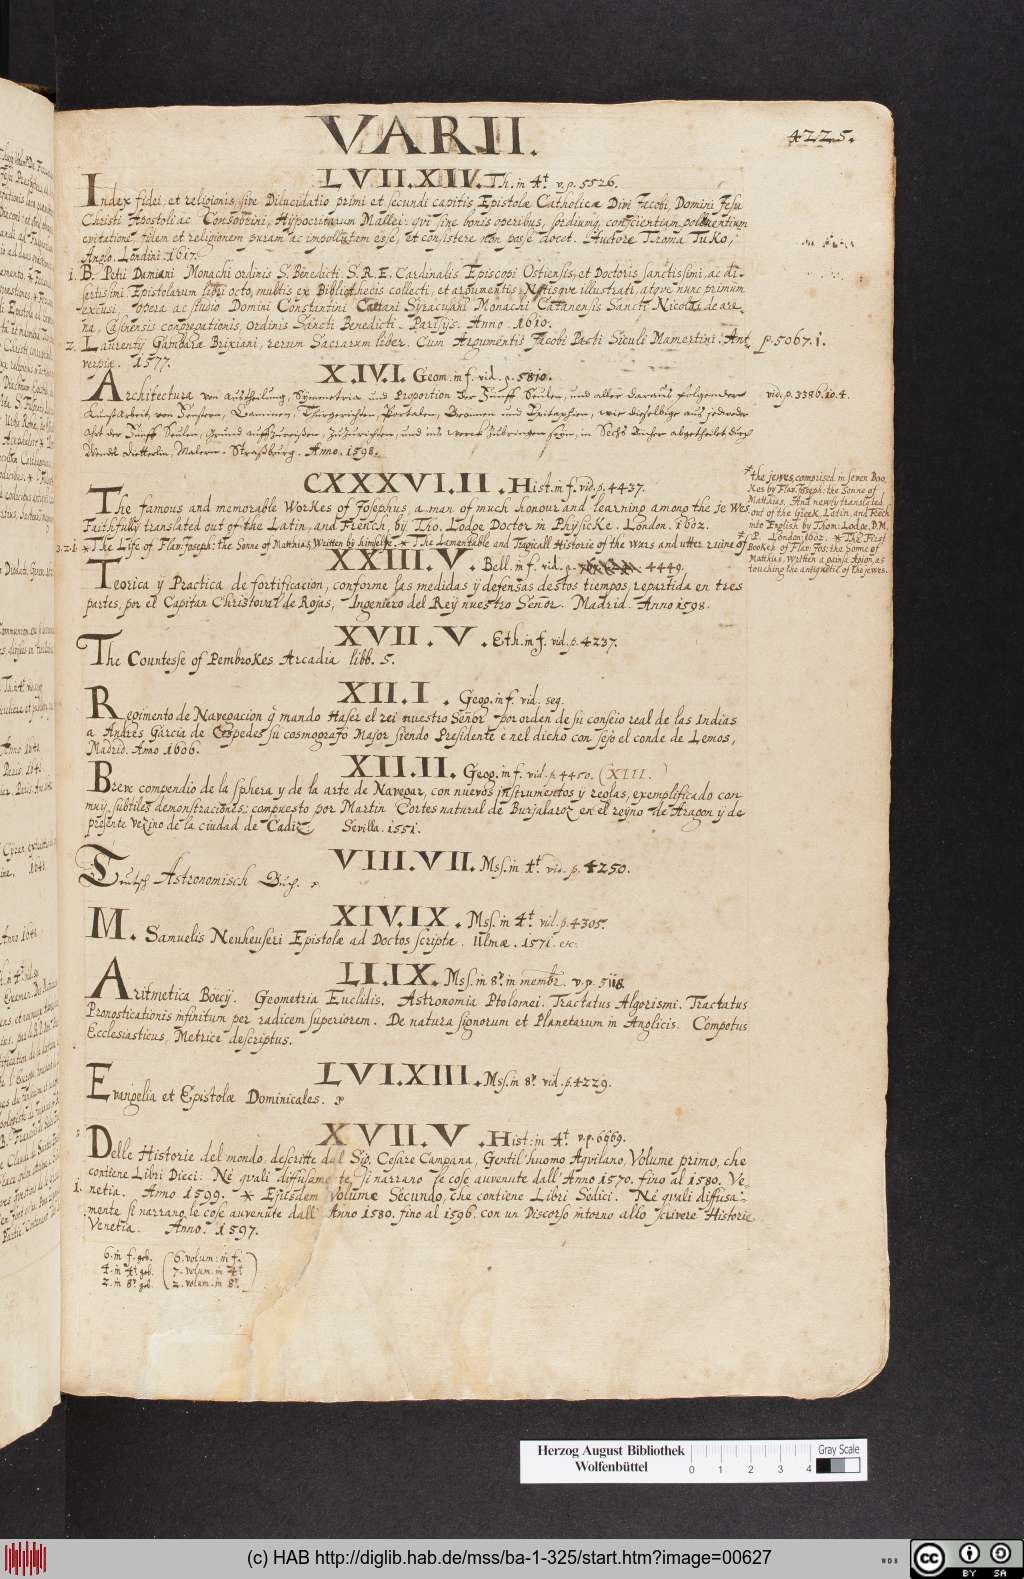 VARII.
4225.
LVII.XIV. Th. in 4t v.p. 5526.
Index fidei, et religionis, sive Dilucidatio primi et secundi capitis Epistolæ Catholicæ Divi Jacobi, Domini Jesu
Christi Apostoli ac Consobrini, Hypocritarum Mallei: qvi sine bonis operibus, conscientiam polluentium
fidem et religionem puram ac impollutam esse, et consistere non posse docet. Autore
Anglo. Londini. 1617.
1. B. Petri Damiani Monachi ordinis S. Benedicti. S. R. E. Cardinalis Episcopi Ostiensis, et Doctoris sanctissimi, ac di-
sertissimi Epistolarum libri octo, multis ex Bibliothecis collecti, et argumentis Notisque illustrati atqve nunc primum
excusi, opera ac studio Domini Constantini Caetani Syracusani Monachi Catanensis Sancti Nicolai de are-
na, Casinensis congregationis, ordinis Sancti Benedicti. Parisijs. Anno. 1610.
2. Laurentij Gambaræ Brixiani, rerum Sacrarum liber. Cum Argumentis Jacobi Pacti Siculi Mamertini. Ant. p. 5067. 1.
verpiæ. 1577.
X.IV.I. Geom. in f. vid. p. 5810.
Architectura von außtheilung, Symmetria und Proportion der Fünff Seulen, und aller daraus folgender vid. p. 3386. 10. 4.
Kunstarbeit von Fenstern, Caminen, Thürgerichten, Portalen, Bronnen und Epitaphien, wie dieselbige aus jedweder
Art der Fünff Seulen, Grund auffzureißen, zuzurichten, und ins werck zubringen seyn, in Sechs Bücher abgetheilet durch
Wendel Dietterlin, Malern. Straßburg. Anno. 1598.
CXXXVI.II. Hist. in f. vid. p. 4437.
The famous and memorable Workes of Josephus, a man of much honour and learning among the Jewes
Faithfully translated out of the Latin, and French, by Tho. Lodge Doctor in Physicke. London. 1602.
3.2.1. * The Life of Flav. Joseph: the Sonne of Matthias, Written by himselfe. * The Lamentable and Tragicall Historie of the wars and utter ruine of
* the jewes, comprised in seven Boo,
kes by Flav. Joseph: the Sonne of
Matthias. And newly translated
out of the Greek, Latin, and Frēch
into English by Thom: Lodge, D.M.
P. London: 1602. * The First
Booke of Flav. Jos: the Sonne of
Matthias, Written against Apion, as
touching the antiqvitie of the jewes.
XXIII.V. Bell. in f. vid. p. 4449.
Teorica y Practica de fortificacion, conforme las medidas y defensas destos tiempos, repartida en tres
partes, por el Capitan Christoval de Rojas, Ingeniero del Rey nuestro Señor. Madrid. Anno 1598.
XVII.V. Eth. in f. vid. p. 4237.
The Countesse of Pembrokes Arcadia libb. 5.
XII.I. Geog. in f. vid. seq.
Regimento de Navegacion q̃ mando Haser el rei nuestro Señor por orden de su conseio real de las Indias
a Andres Garcia de Cespedes su cosmografo Major siendo Presidente e nel dicho con sejo el conde de Lemos,
Madrid. Anno 1606.
XII.II. Geog. in f. vid. p. 4450. (XIII.)
Breve compendio de la sphera y de la arte de Navegar, con nuevos instrumentos y reglas, exemplificado con
muy subtiles demonstraciones: compuesto por Martin Cortes natural de Burjalaroz en el reyno de Aragon y de
presente vezino de la ciudad de Cadiz. Sevilla. 1551.
VIII.VII. Mss. in 4t. vid. p. 4250.
Teutsch Astronomisch Buch.
XIV.IX. Mss. in 4t vid. p. 4305.
M. Samuelis Neuheuseri Epistolæ ad Doctos scriptæ. Ulmæ. 1571. etc.
LI.IX. Mss. in 8º. in membr. v.p. 5118.
Aritmetica Boecij. Geometria Euclidis. Astronomia Ptolomei. Tractatus Algorismi. Tractatus
Pronosticationis infinitum per radicem superiorem. De natura signorum et Planetarum in Anglicis. Compotus
Ecclesiasticus, Metrice descriptus.
LVI.XIII. Mss. in 8º. vid. p. 4229.
Evangelia et Epistolæ Dominicales.
XVII.V. Hist: in 4t. v.p. 6669.
Delle Historie del mondo, descritte dal Sig. Cesare Campana, Gentil'huomo Aqvilano, Volume primo, che
contiene Libri Dieci: Ne qvali diffusamente, si narrano le cose avvenute dall' Anno 1570. fino al 1580. Ve-
1. netia. Anno 1599. * Ejusdem Volume Secundo, che contiene Libri Sedici. Ne qvali diffusa-
mente si narrano le cose auvenute dall' Anno 1580. fino al 1596. con un Discorso intorno allo scrivere Historie
Venetia. Anno. 1597.
6. in f. geb. (6. volum: in f.
4. in 4t. geb. 7. volum: in 4t
2. in 8º. geb. 2. volum: in 8º.)
Herzog August Bibliothek
Wolfenbüttel
0 1 2 3 4
Gray Scale
(c) HAB http://diglib.hab.de/mss/ba-1-325/start.htm?image=00627
WDB
cc BY SA